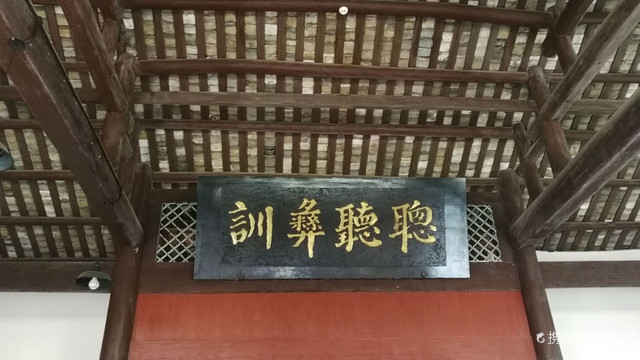 聰聽彝訓